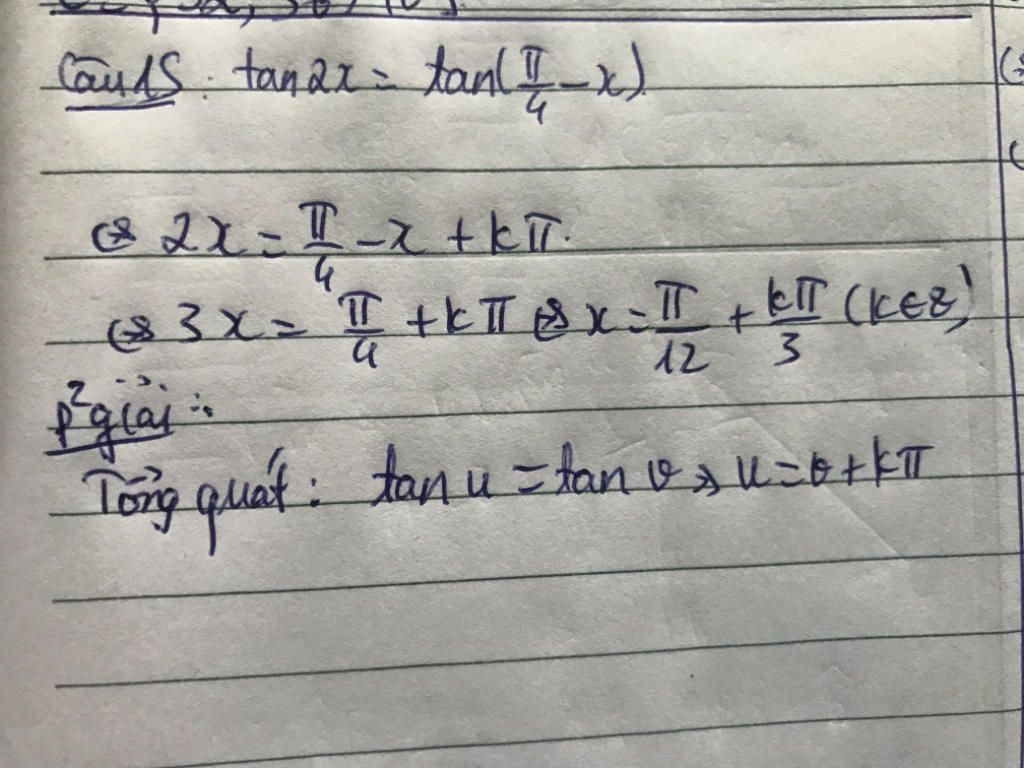 Câu 15: tan2x = tan(π/4 - x)
⇔ 2x = π/4 - x + kπ.
⇔ 3x = π/4 + kπ ⇔ x = π/12 + kπ/3 (k∈Z)
p² giải:
Tổng quát: tan u = tan v ⇒ u = v + kπ